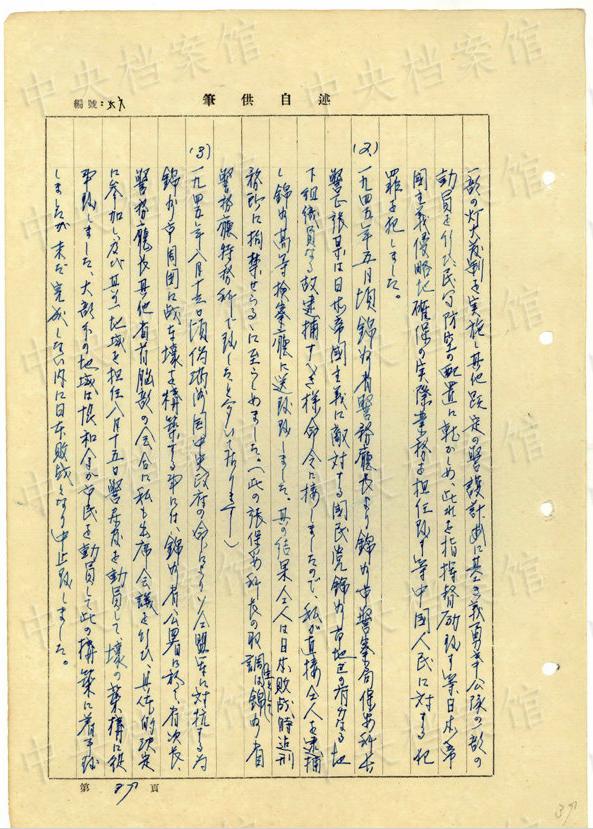 述自供筆
編號:
一部の灯火管制を実施し其他既定の警護計画に基き義勇奉公隊の一部の
動員を行ひ民守防空の配置に就かしめ、此れを指揮督励致す等日本帝
国主義侵略地確保の実際業務を担任致す等中国人民に対する犯
罪を犯しました。
(2) 一九四五年五月頃錦州省警務庁長より錦州市警察局保安科長
警正張某は日本帝国主義に敵対する国民党錦州省地区の有力なる地
下組織員なる故逮捕すべき様命令に接しましたので、私が直接全人を逮捕
し錦州高等検察庁に送致致しました、其の結果全人は日本敗戦時迄刑
務所に拘禁せらるゝに至らしめました。(此の張保安科長の取調は錦州省
警務庁特務科で致したと思い居ります)
(3) 一九四五年八月十三日頃偽満洲国中央政府の命によりソ連軍に対抗する為
錦州市周囲に戦車壕を構築する事になり、錦州省公署に於て省次長、
警務庁長其他省首脳部の会合に私も出席会議を行ひ、具体的決定
に参加し、及び其の一地域を担任八月十五日警察官を動員して壕の築構に従
事致しました、大部分の地域は協和会が市民を動員して此の構築に着手致
しましたが未だ完成しない内に日本敗戦となり中止致しました。
第 39 頁
39
中央档案馆